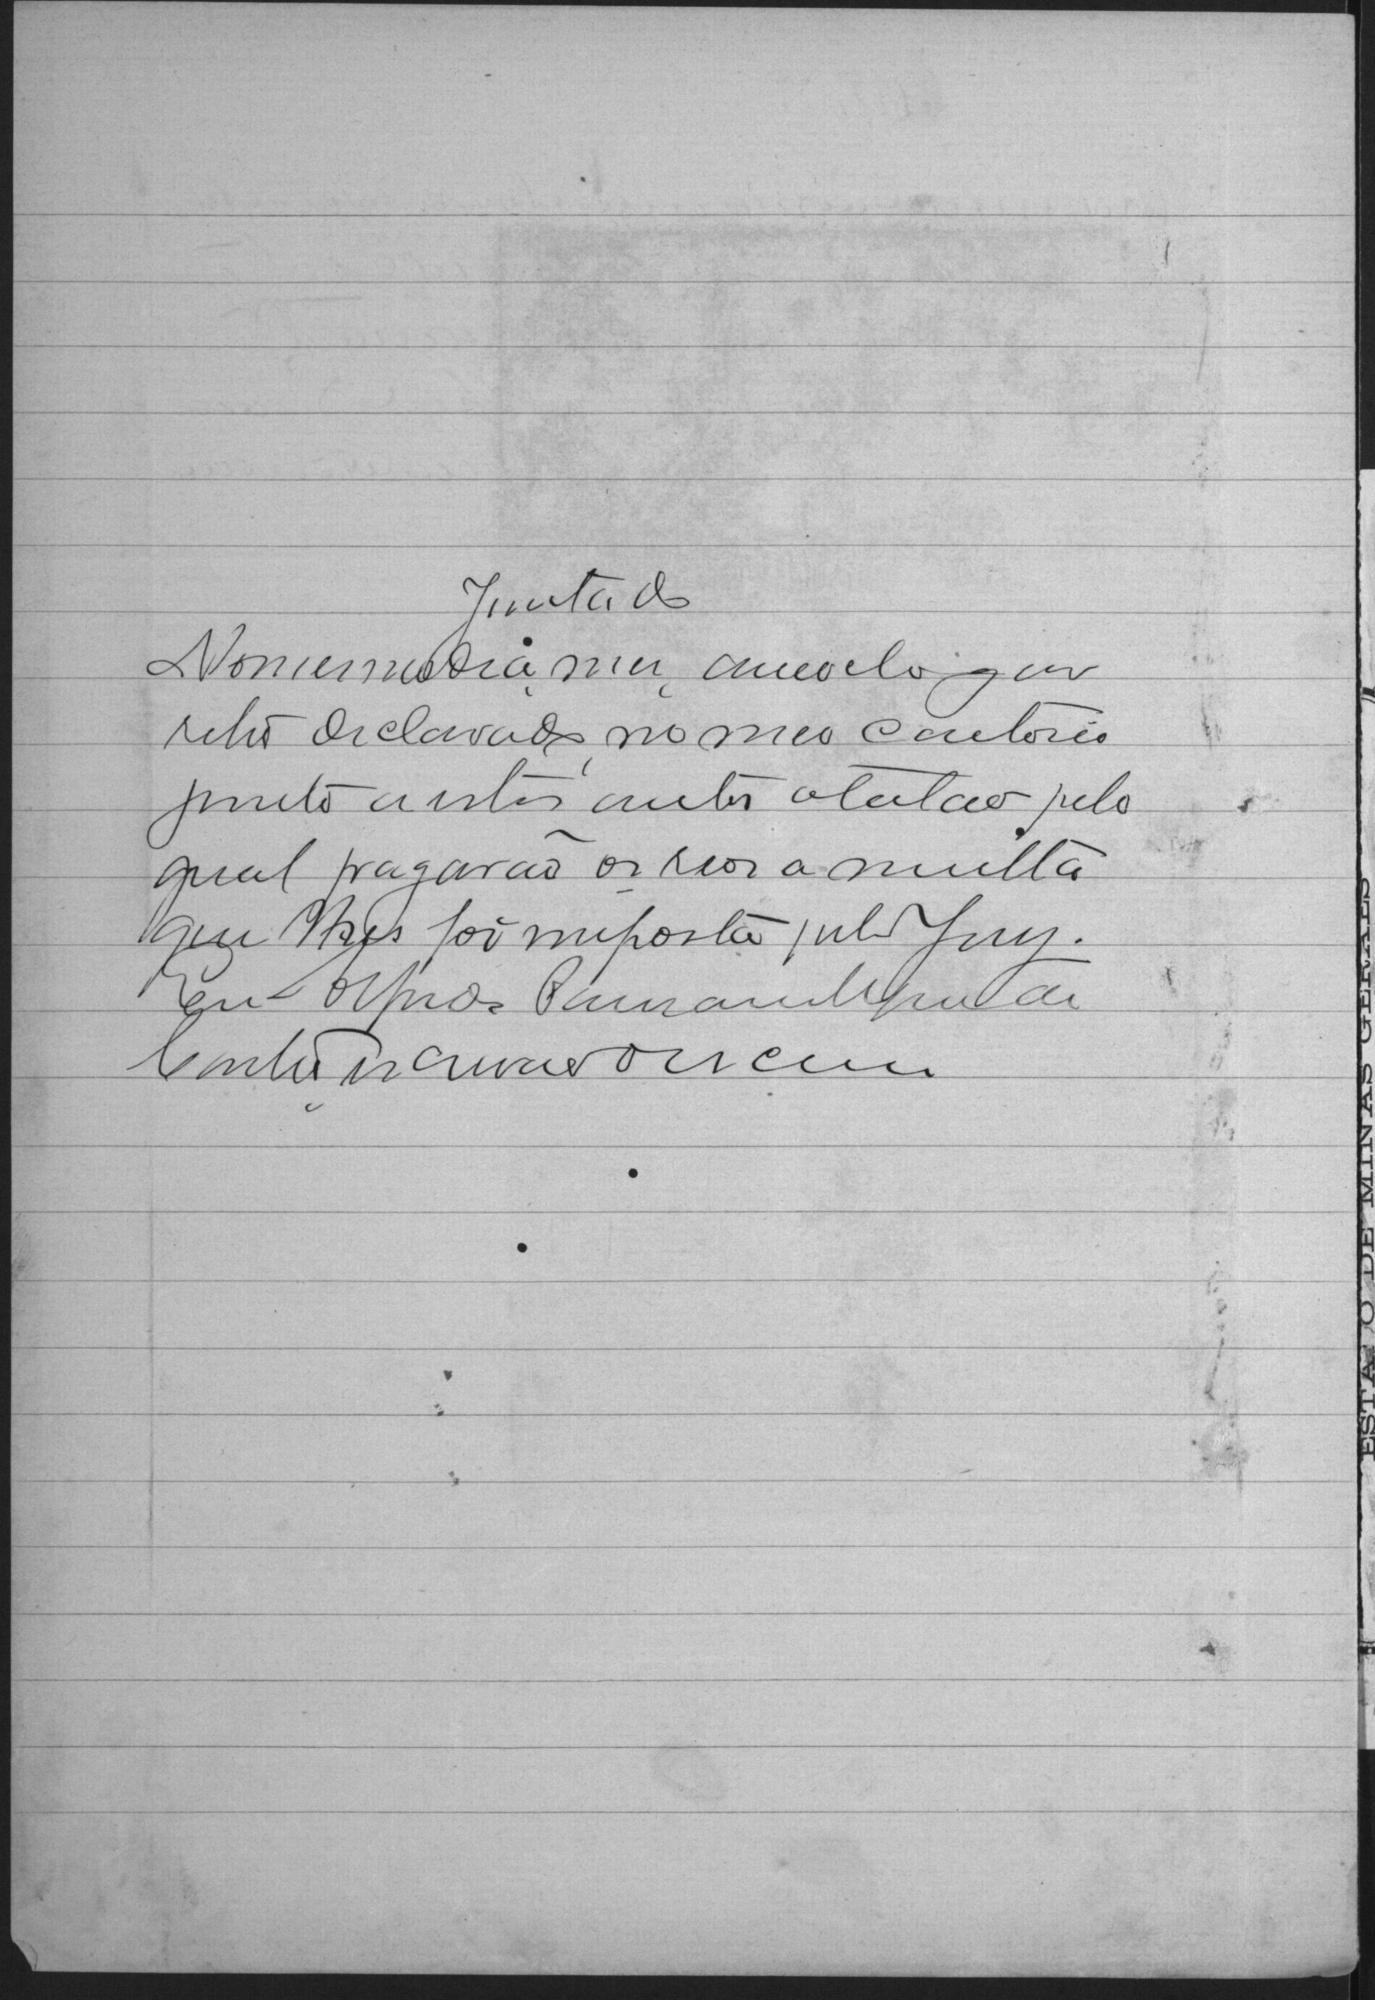 Juntada
No mesmo dia, mez, anno e logar
retro declarado, no meo cartorio
junto a estes autos o talão pelo
qual pagarão os reos a multa
que lhes foi imposta pelo Jury.
Eu
escrivão o escrevi
ESTADO DE MINAS GERAES